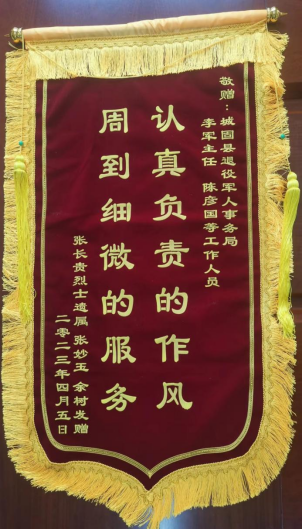 敬赠：城固县退役军人事务局
李军主任 陈彦国等工作人员
认真负责的作风
周到细微的服务
张长贵烈士遗属 张妙玉 余树发赠
二零二三年四月五日